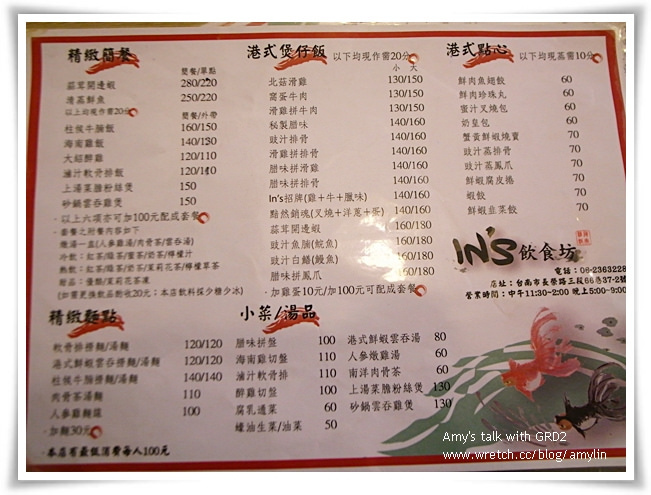 精緻簡餐
簡餐/單點
蒜茸開邊蝦 280/220
清蒸鮮魚 250/220
以上均現作需20分
簡餐/外帶
柱侯牛腩飯 160/150
海南雞飯 140/130
大紹醉雞 120/110
滷汁軟骨排飯 120/110
上湯菜膽粉絲煲 150
砂鍋雲吞雞煲 150
·以上六項亦可加100元配成套餐
·套餐之附餐內容如下
燉湯一盅(人參雞湯/肉骨茶/雲吞湯)
冷飲：紅茶/綠茶/蜜茶/奶茶/檸檬汁
熱飲：紅茶/綠茶/奶茶/茉莉花茶/檸檬草茶
甜品：優酪/茉莉花茶凍
(如需更換飲品酌收20元；本店飲料採少糖少冰)
精緻麵點
軟骨排撈麵/湯麵 120/120
港式鮮蝦雲吞撈麵/湯麵 120/120
柱侯牛腩撈麵/湯麵 140/140
肉骨茶湯麵 110
人參雞麵線 100
·加麵30元
·本店有最低消費每人100元
港式煲仔飯 以下均現作需20分
小 大
北菇滑雞 130/150
窩蛋牛肉 130/150
滑雞拼牛肉 130/150
秘製腊味 140/160
豉汁排骨 140/160
滑雞拼排骨 140/160
腊味拼滑雞 140/160
腊味拼排骨 140/160
In's招牌(雞+牛+臘味) 140/160
黯然銷魂(叉燒+洋蔥+蛋) 140/160
蒜茸開邊蝦 160/180
豉汁魚腩(鯇魚) 160/180
豉汁白鱔(鰻魚) 160/180
腊味拼鳳爪 160/180
·加雞蛋10元/加100元可配成套餐
小菜/湯品
腊味拼盤 100
海南雞切盤 110
滷汁軟骨排 110
醉雞切盤 100
腐乳通菜 60
蠔油生菜/油菜 50
港式鮮蝦雲吞湯 80
人參燉雞湯 60
南洋肉骨茶 60
上湯菜膽粉絲煲 130
砂鍋雲吞雞煲 130
港式點心 以下均現蒸需10分
鮮肉魚翅餃 60
鮮肉珍珠丸 60
蜜汁叉燒包 60
奶皇包 60
蟹黃鮮蝦燒賣 70
豉汁蒸排骨 70
豉汁蒸鳳爪 70
鮮蝦腐皮捲 70
蝦餃 70
鮮蝦韭菜餃 70
IN'S 飲食坊
電話：06-2363228
店址：台南市長榮路三段66巷37-2號
營業時間：中午11:30~2:00 晚上5:00~9:00
Amy's talk with GRD2
www.wretch.cc/blog/amylin